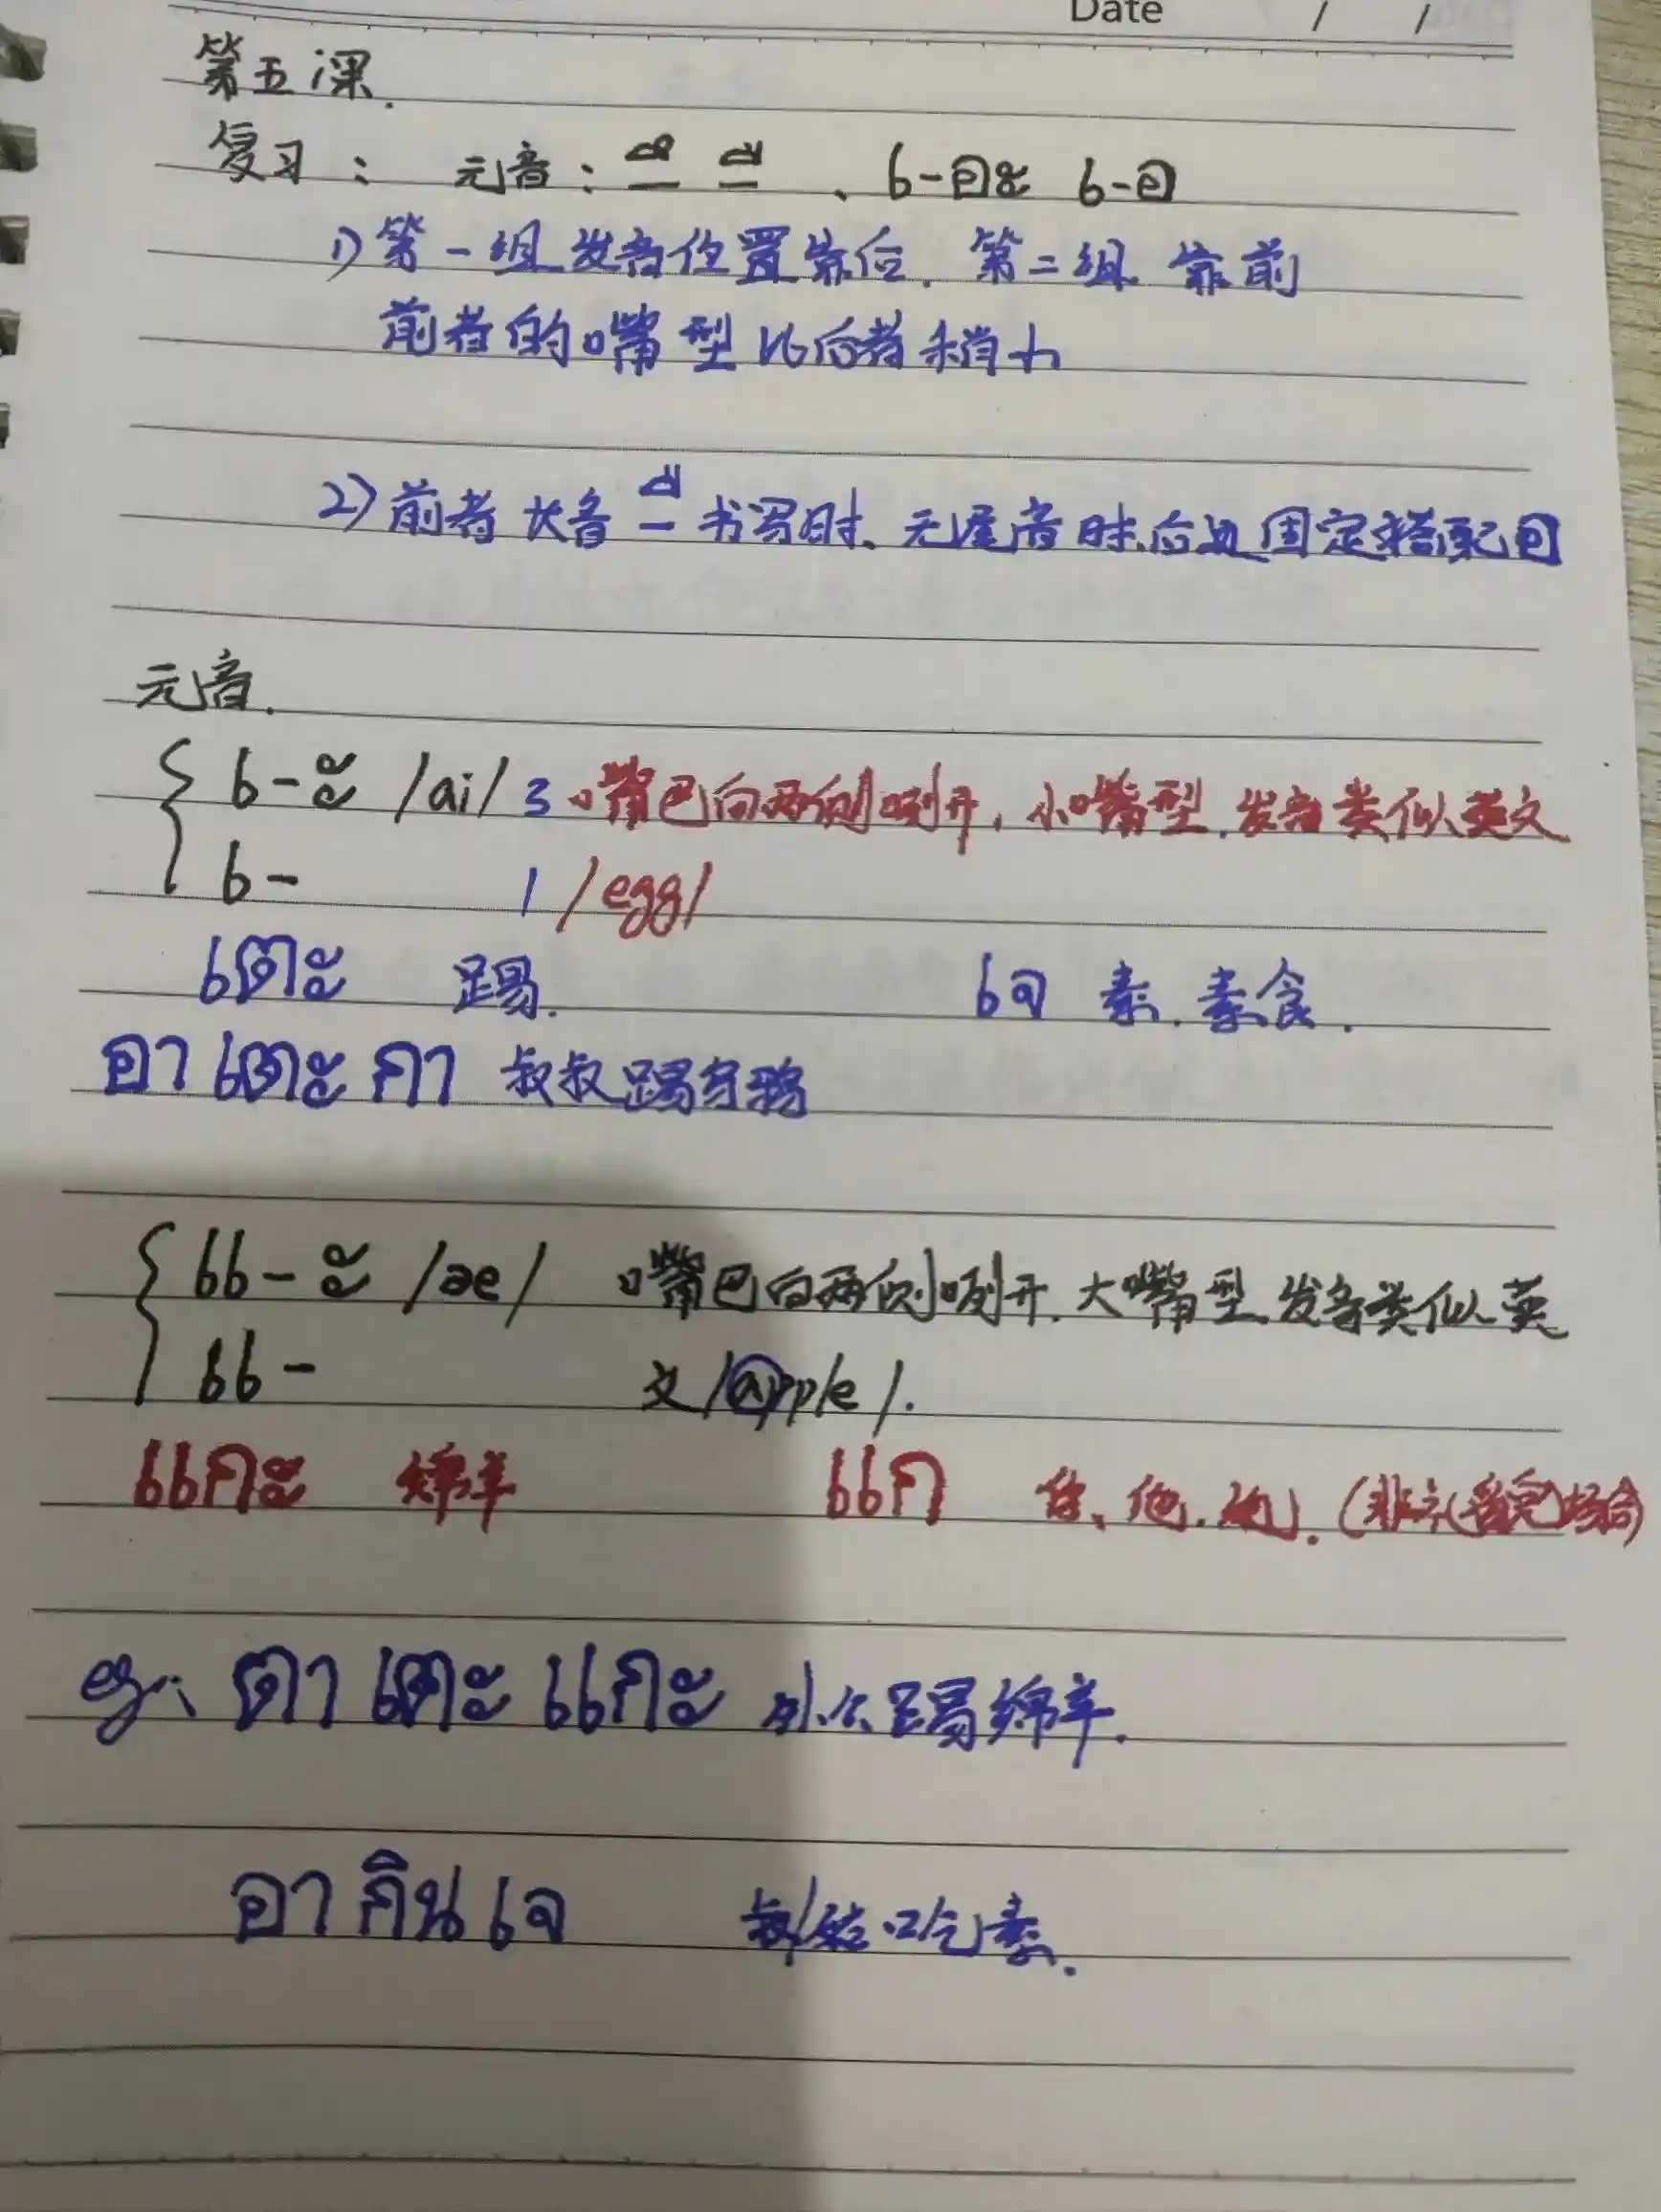 Date / /
第五课.
复习: 元音: –ึ –ื 、เ-อะ เ-อ
1)第一组发音位置靠后. 第二组.靠前
前者的嘴型比后者稍小
2)前者长音 –ื 书写时、无尾音时后边固定搭配อ
元音.
เ-ะ /ai/ 3 嘴巴向两侧咧开, 小嘴型. 发音类似英文
เ- 1 /egg/
เตะ 踢. เจ 素.素食.
อา เตะ กา 叔叔踢乌鸦
แ-ะ /ae/ 嘴巴向两侧咧开.大嘴型.发音类似英
แ- 文/apple/.
แกะ 绵羊 แก 你、他.她.(非礼貌场合)
eg、ตา เตะ แกะ 外公踢绵羊.
อา กิน เจ 叔叔吃素.